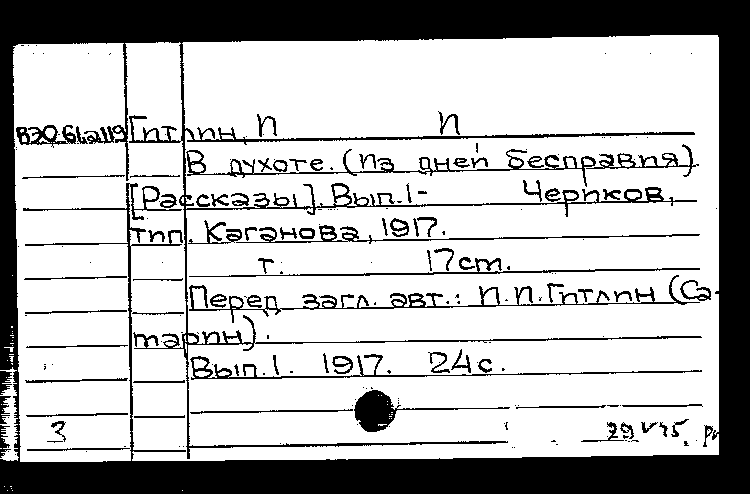 ВЭО.61а119 Гитлин, П И
В духоте. (Из дней бесправия)
[Рассказы]. Вып. 1- Чериков,
тип. Каганова, 1917.
т. 17cm.
Перед загл. авт.: И.П.Гитлин (Са-
тарин).
Вып. 1. 1917. 24 с.
3 29 V 75